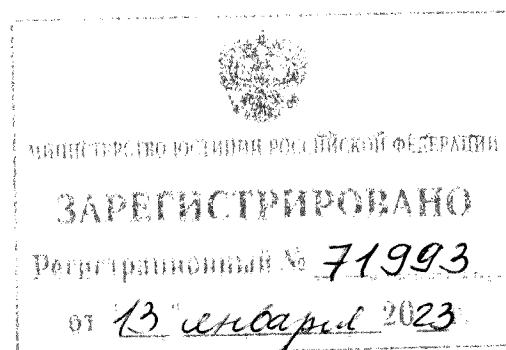 МИНИСТЕРСТВО ЮСТИЦИИ РОССИЙСКОЙ ФЕДЕРАЦИИ
ЗАРЕГИСТРИРОВАНО
Регистрационный № 71993
от "13" января 2023